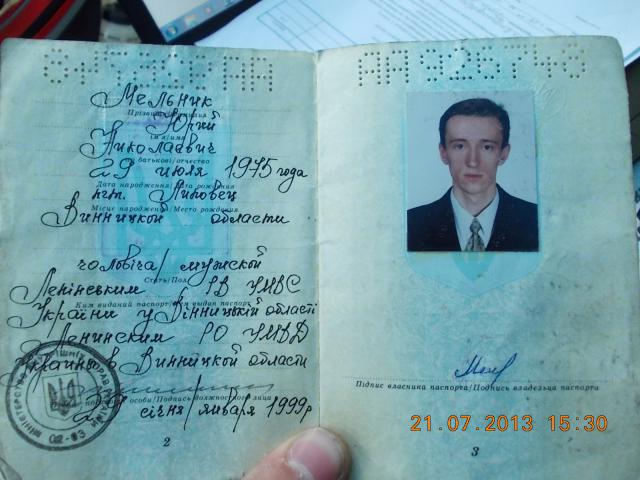 Мельник
Прізвище/Фамилия
Юрий
Ім'я/Имя
Николаевич
По батькові/Отчество
29 июля 1975 года
Дата народження/Дата рождения
пгт. Липовец
Місце народження/Место рождения
Винницкой области
чоловіча/мужской
Стать/Пол
Ленінським РВ УМВС
Ким виданий паспорт/Кем выдан паспорт
України у Вінницькій області
Ленинским РО УМВД
Украины в Винницкой области
особи/Подпись должностного лица
січня/января 1999р
02-03
2
АН926740
Підпис власника паспорта/Подпись владельца паспорта
21.07.2013 15:30
3